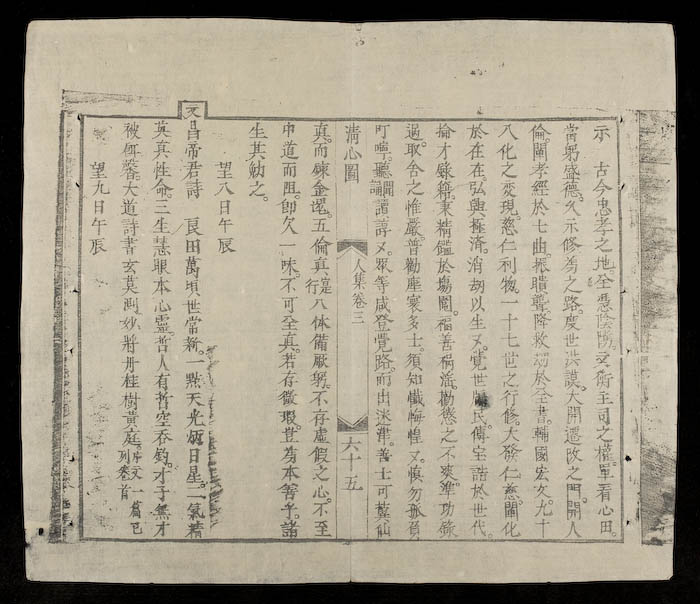 示 古今忠孝之地。全憑陰隲文衡主司之權。單看心田。
當躬盛德。久示修為之路。度世洪謨。大開遷改之門。開人
倫。闡孝經於七曲。振聵聾。降救刼於全書。輔國宏文。九十
八化之变現。慈仁利物。一十七世之行修。大發仁慈。闡化
於在在。弘興極濟。消刼以生又。覺世牖民。傳宝誥於世代。
掄才錄籍。秉精鑑於塲闈。福善禍滛。勸懲之不爽。準功錄
過。取舍之惟嚴。普勸塵寰多士。須知懺悔惶又。慎勿孤負
叮嚀。聽聞諄諄又。眾等咸登覺路。而出迷津。善士可冀仙
清心圖 人集卷三 六十五
真。而鍊金磘。五倫真寔行。八体備厥躬。不存虛假之心。不至
中道而阻。卽欠一味。不可全真。若存微瑕。豈為本善乎。諸
生其勉之。
望八日午辰
文昌帝君詩 良田萬頃世常新。一點天光炳日星。一氣精
英真性命。三生慧眼本心靈。哲人有哲空吞鈎。才子無才
被餌馨。大道詩書玄莫測。妙將丹桂樹黃庭。序文一篇已列卷首
望九日午辰